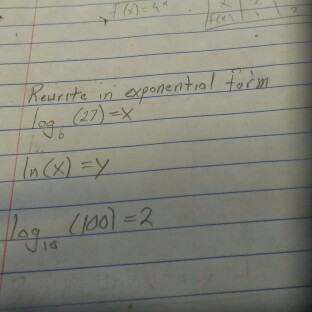 f(x)=4ˣ
x
f(x) 1 2
Rewrite in exponential form
log₆ (27)=x
ln(x) = y
log₁₀ (100) = 2